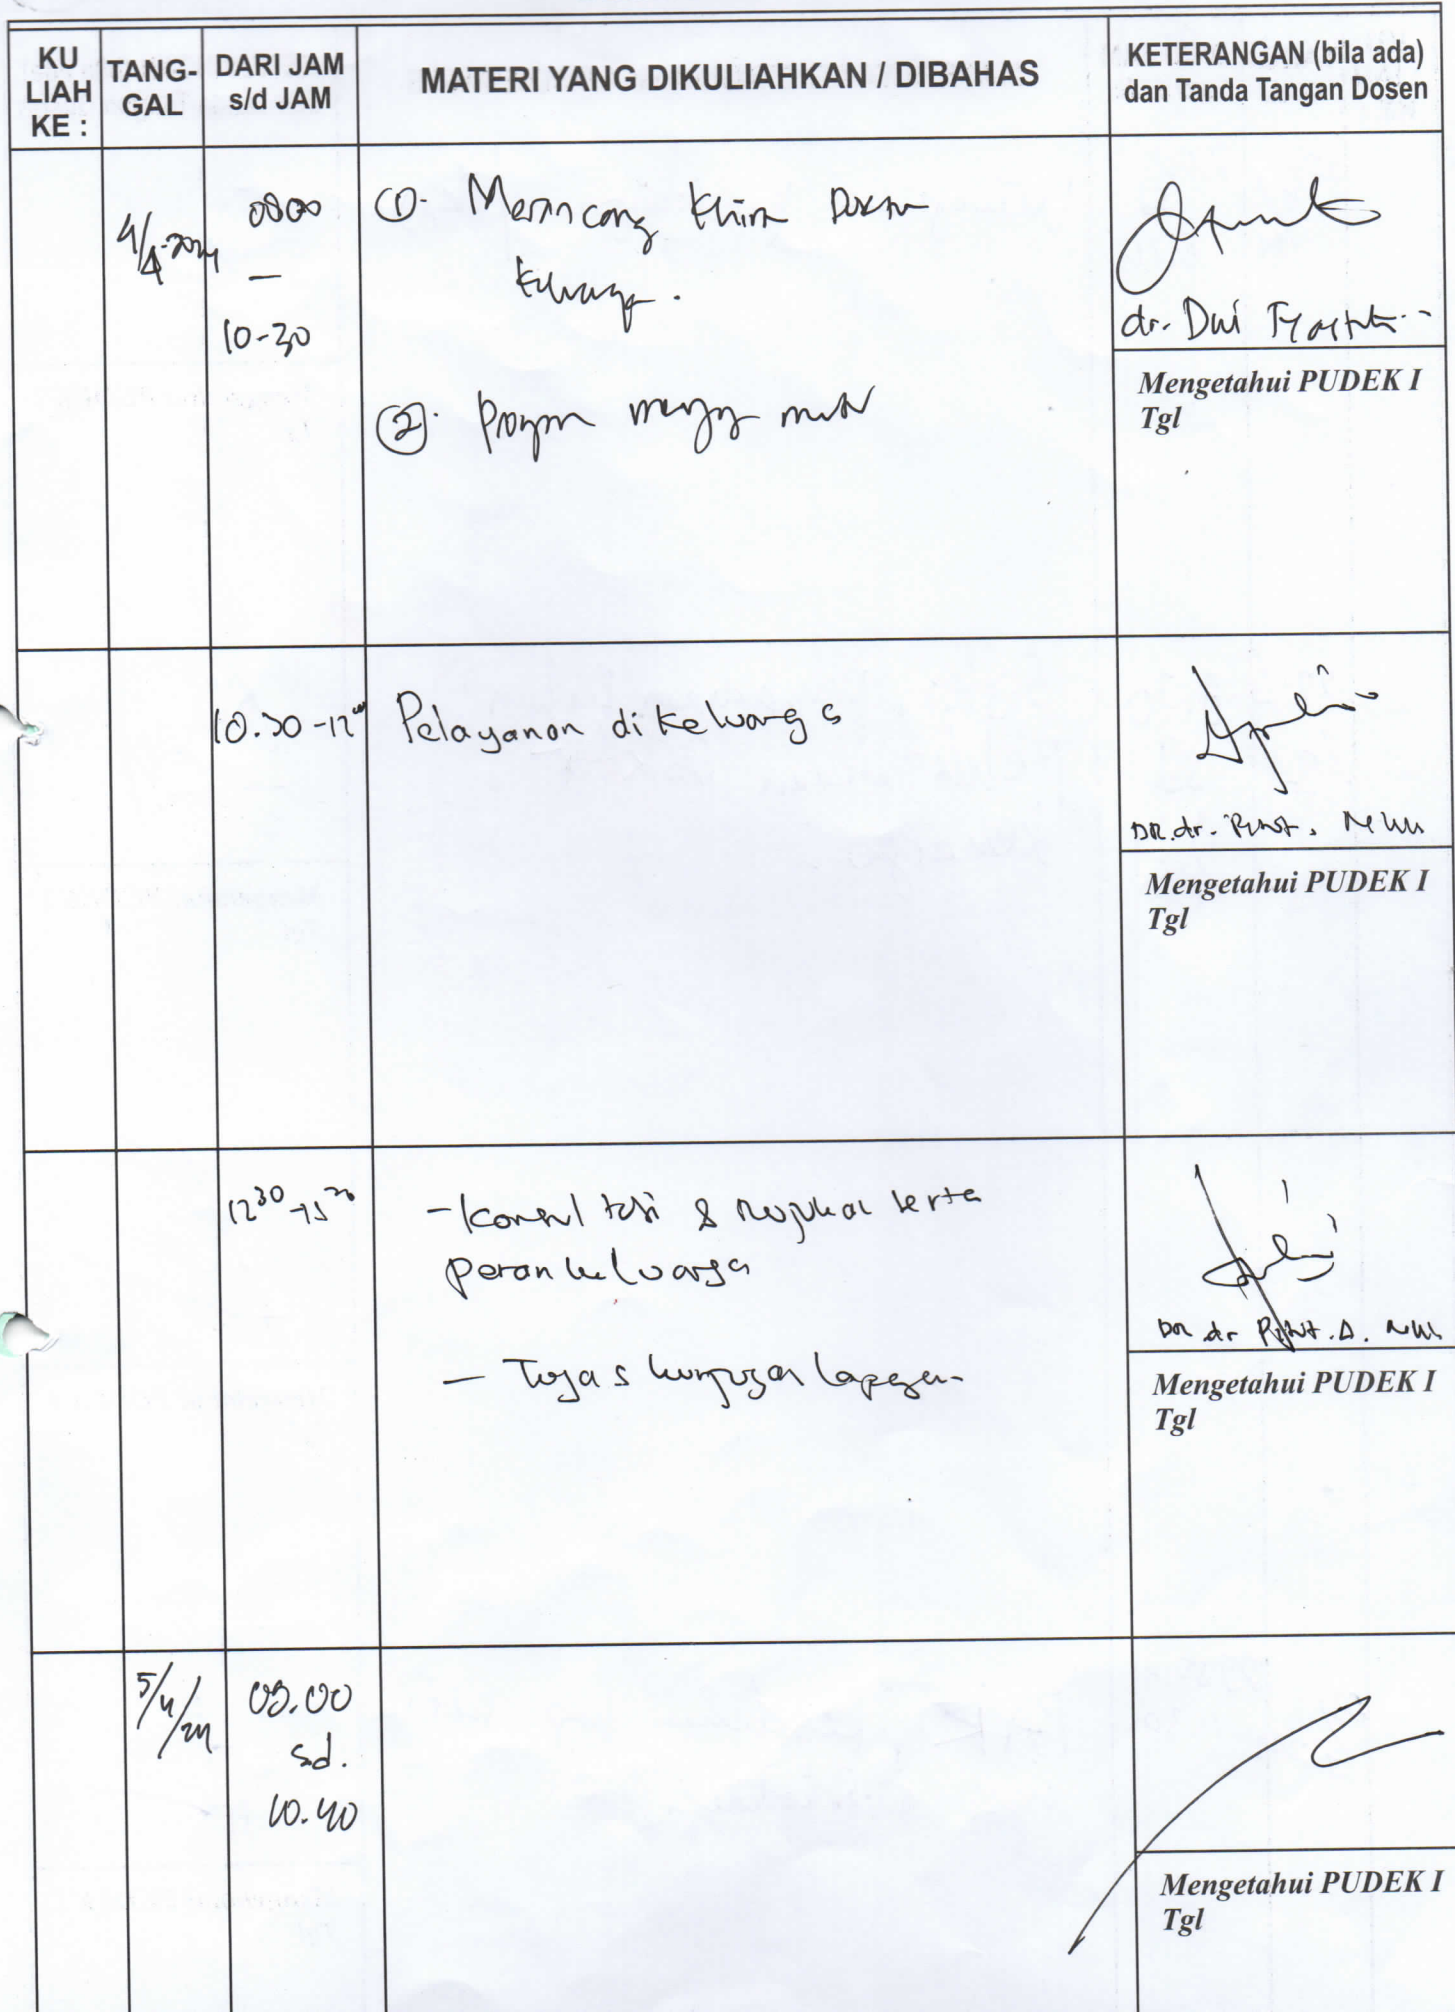 KU LIAH KE :
TANG-GAL
DARI JAM s/d JAM
MATERI YANG DIKULIAHKAN / DIBAHAS
KETERANGAN (bila ada) dan Tanda Tangan Dosen
4/4-2024
0800
—
10-30
①. Merancang Klinik Dokter
Keluarga.
②.
dr. Dwi
Mengetahui PUDEK I
Tgl
10.30-12
Pelayanan di keluarga
DR. dr.
Mengetahui PUDEK I
Tgl
12³⁰-15
- Konsultasi & rujukan serta
peran keluarga
- Tugas kunjungan lapangan
dr
Mengetahui PUDEK I
Tgl
5/4/24
sd.
10.40
Mengetahui PUDEK I
Tgl